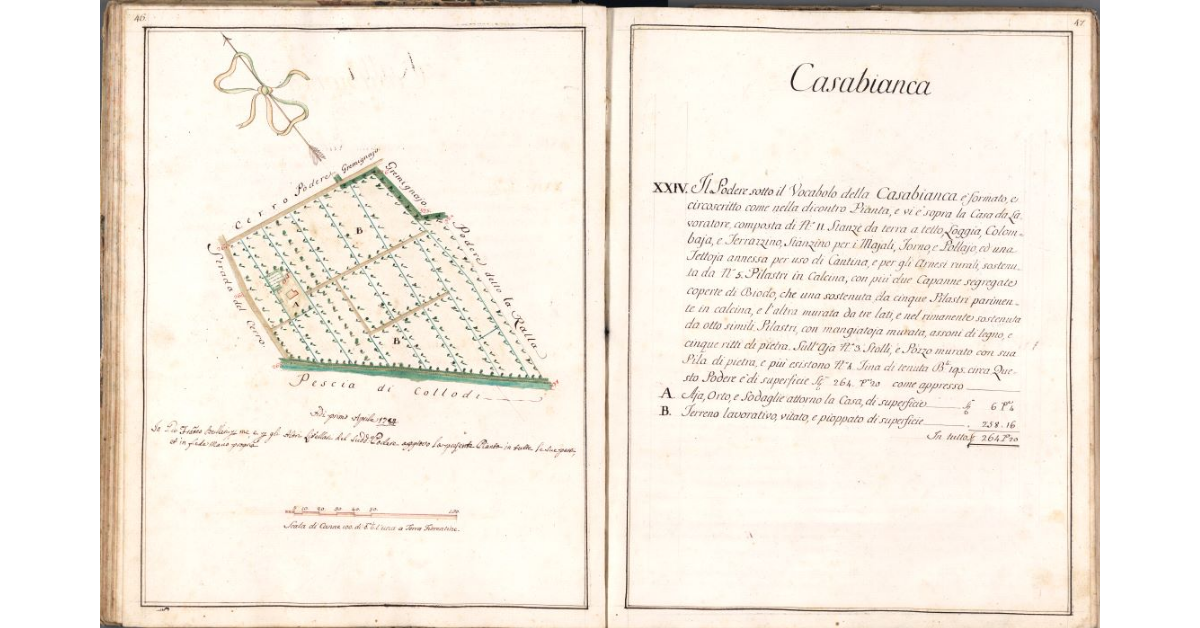 46.
Cerro Podere Gremignajo
Gremignajo
Podere detto la Ralla
Strada del Cerro
B
A
B
Pescia di Collodi
Di primo Aprile
et in fede Mano propria
10 20 30 40 50 100
Scala di Canne 100 di B.ª 5 l'una a Terra Fiorentine.
47
Casabianca
XXIV. Il Podere sotto il Vocabolo della Casabianca e' formato, e
circoscritto come nella dicontro Pianta, e vi e' sopra la Casa da La-
voratore, composta di N.º 11. Stanze da terra a tetto, Loggia, Colom-
baja, e Terrazzino, Stanzino per i Majali, Forno, e Pollajo, ed una
Tettoja annessa per uso di Cantina, e per gli Arnesi rurali, sostenu-
ta da N.º 5. Pilastri in Calcina, con piu' due Capanne segregate
coperte di Biodo, che una sostenuta da cinque Pilastri parimen-
te in calcina, e l'altra murata da tre lati, e nel rimanente sostenuta
da otto simili Pilastri, con mangiatoja murata, assoni di legno, e
cinque ritti di pietra. Sull'Aja N.º 3. Stolli, e Pozzo murato con sua
Pila di pietra, e piu' esistono N.º 4. Tina di tenuta B.ª 195. circa. Que-
sto Podere e' di superficie 264. P.e 20 come appresso
A. Aja, Orto, e Sodaglie attorno la Casa, di superficie 6 P.e 4
B. Terreno lavorativo, vitato, e pioppato di superficie 258.16
In tutto 264 P.e 20